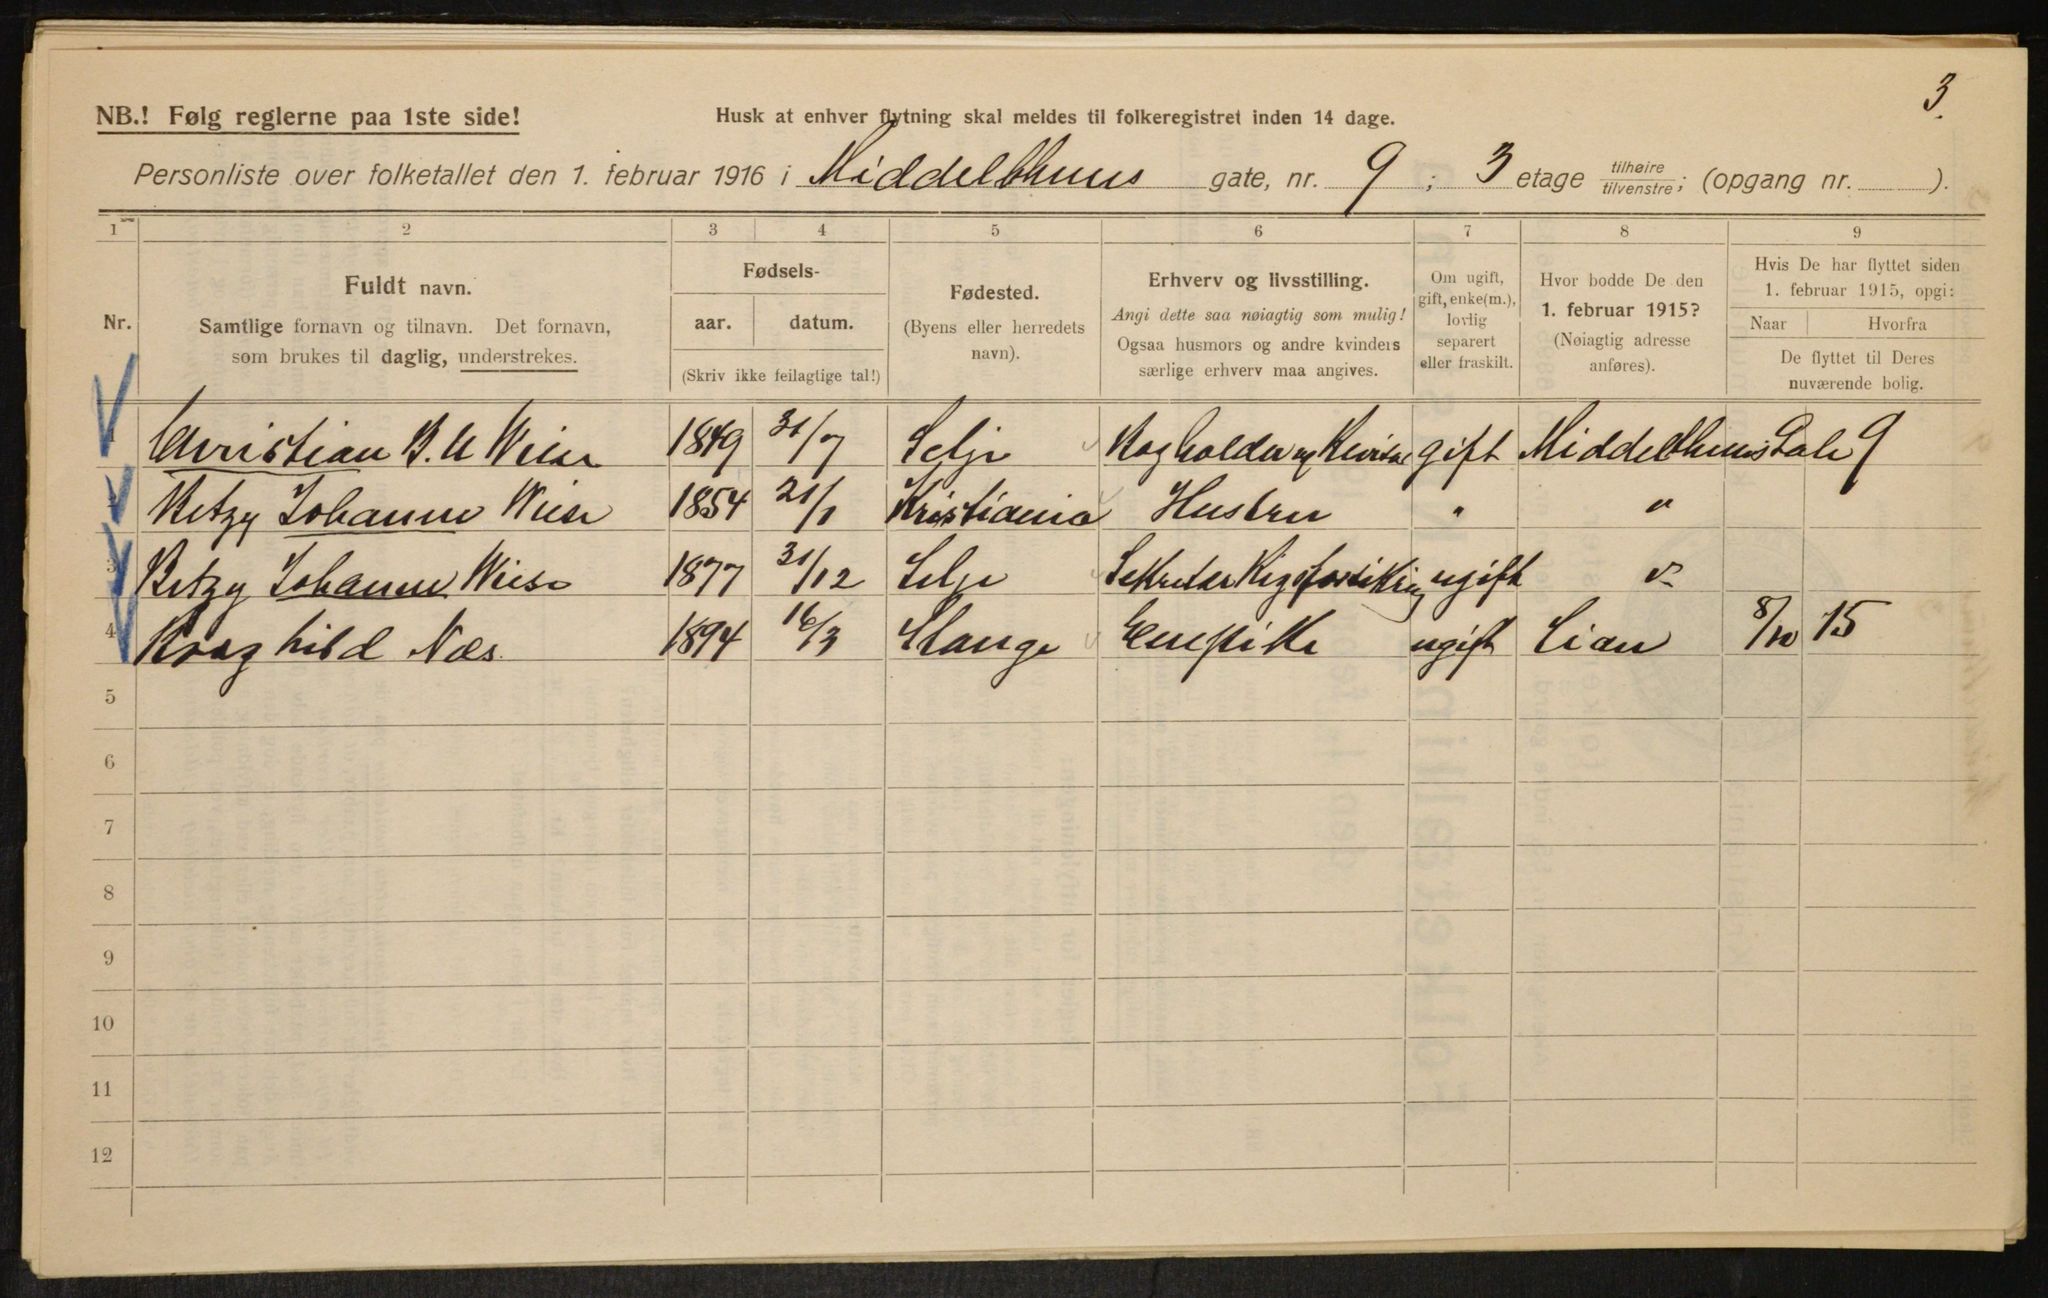 3.
NB.! Følg reglerne paa 1ste side!
Husk at enhver flytning skal meldes til folkeregistret inden 14 dage.
Personliste over folketallet den 1. februar 1916 i Middelthuns gate, nr. 9; 3 etage tilhøire tilvenstre; (opgang nr. ).
1 2 3 4 5 6 7 8 9
Nr.
Fuldt navn.
Samtlige fornavn og tilnavn. Det fornavn,
som brukes til daglig, understrekes.
Fødsels-
aar. datum.
(Skriv ikke feilagtige tal!)
Fødested.
(Byens eller herredets
navn).
Erhverv og livsstilling.
Angi dette saa nøiagtig som mulig!
Ogsaa husmors og andre kvinders
særlige erhverv maa angives.
Om ugift,
gift, enke(m.),
lovlig
separert
eller fraskilt.
Hvor bodde De den
1. februar 1915?
(Nøiagtig adresse
anføres).
Hvis De har flyttet siden
1. februar 1915, opgi:
Naar Hvorfra
De flyttet til Deres
nuværende bolig.
1 Christian B. Wiese 1849 31/7 Selje Bogholder og gift Middelthunsgate 9
2 Betzy Johanne Wiese 1854 21/1 Kristiania Hustru " "
3 Betzy Johanne Wiese 1877 31/12 Selje Sekretær ugift "
4 Ragnhild Næs. 1894 16/3 Stange Enepike ugift Lian 8/10 15
5
6
7
8
9
10
11
12